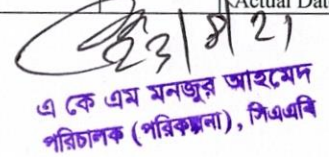 Actual Dat
23/8/21
এ কে এম মনজুর আহমেদ
পরিচালক (পরিকল্পনা), সিএএবি